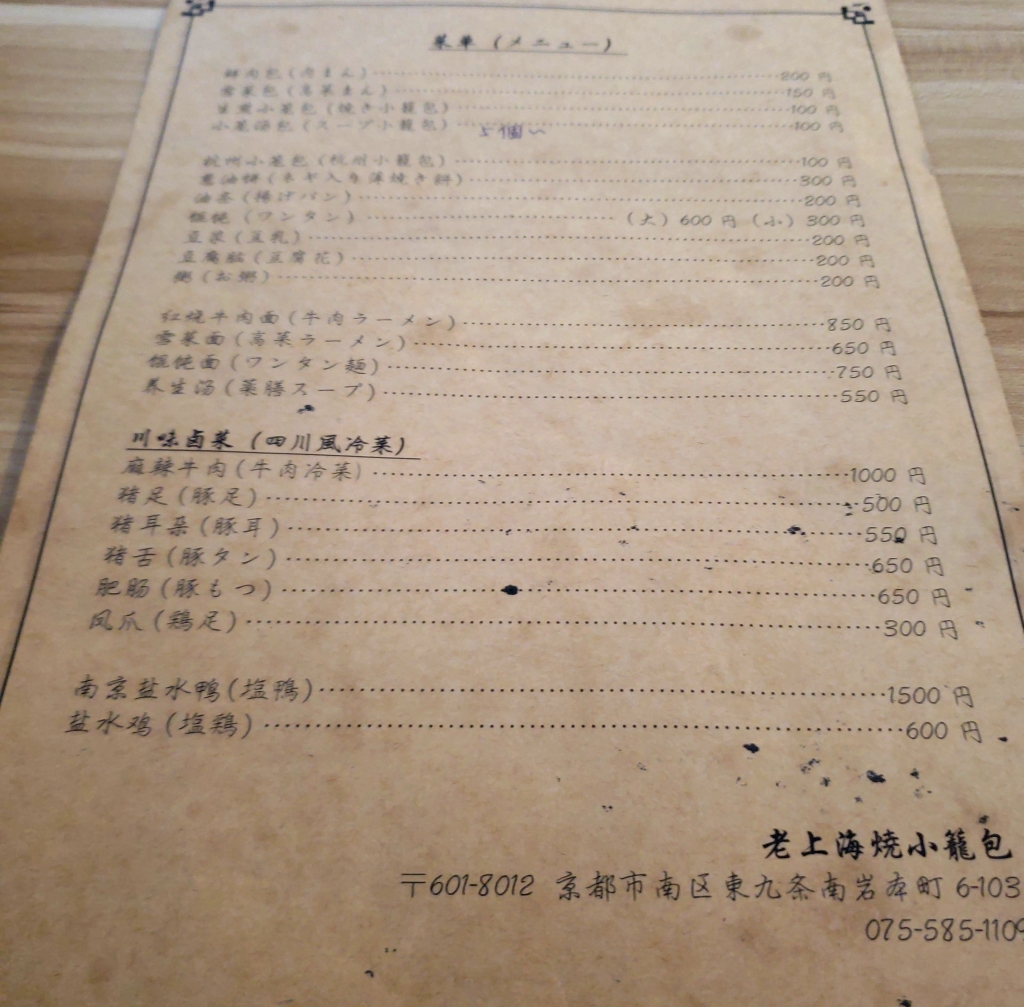 菜单 (メニュー)
鲜肉包(肉まん) 200 円
雪菜包(高菜まん) 150 円
生煎小笼包(焼き小籠包) 100 円
小笼汤包(スープ小籠包) 100 円
5個~
杭州小笼包(杭州小籠包) 100 円
葱油饼(ネギ入り薄焼き餅) 300 円
油条(揚げパン) 200 円
馄饨 (ワンタン) (大) 600 円 (小) 300 円
豆浆(豆乳) 200 円
豆腐脑(豆腐花) 200 円
粥(お粥) 200 円
红烧牛肉面(牛肉ラーメン) 850 円
雪菜面(高菜ラーメン) 650 円
馄饨面(ワンタン麺) 750 円
养生汤(薬膳スープ) 550 円
川味卤菜 (四川風冷菜)
麻辣牛肉(牛肉冷菜) 1000 円
猪足(豚足) 500 円
猪耳朵(豚耳) 550 円
猪舌(豚タン) 650 円
肥肠(豚もつ) 650 円
凤爪(鶏足) 300 円
南京盐水鸭(塩鴨) 1500 円
盐水鸡(塩鶏) 600 円
老上海焼小籠包
〒601-8012 京都市南区東九条南岩本町 6-103
075-585-1109